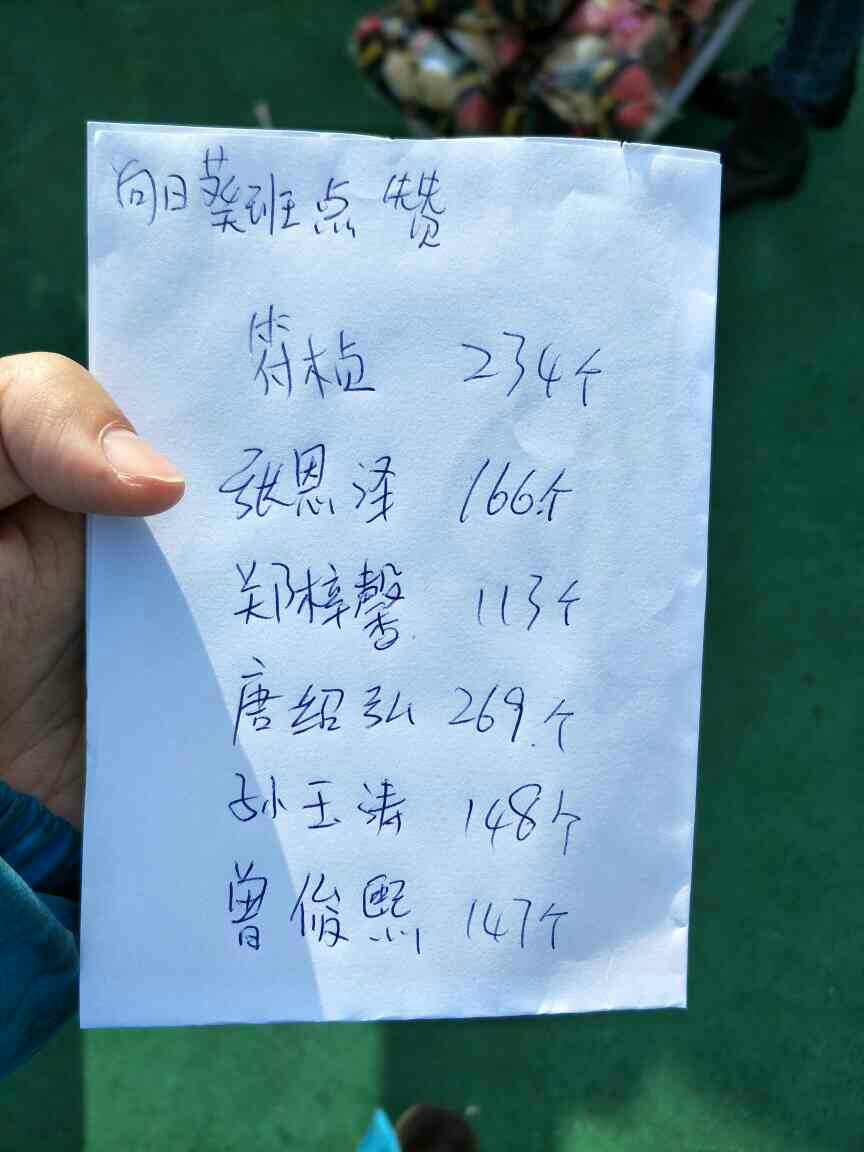 向日葵班点赞
符桢 234个
张恩泽 166个
郑梓馨 113个
唐绍弘 269个
孙玉涛 148个
曾俊熙 147个